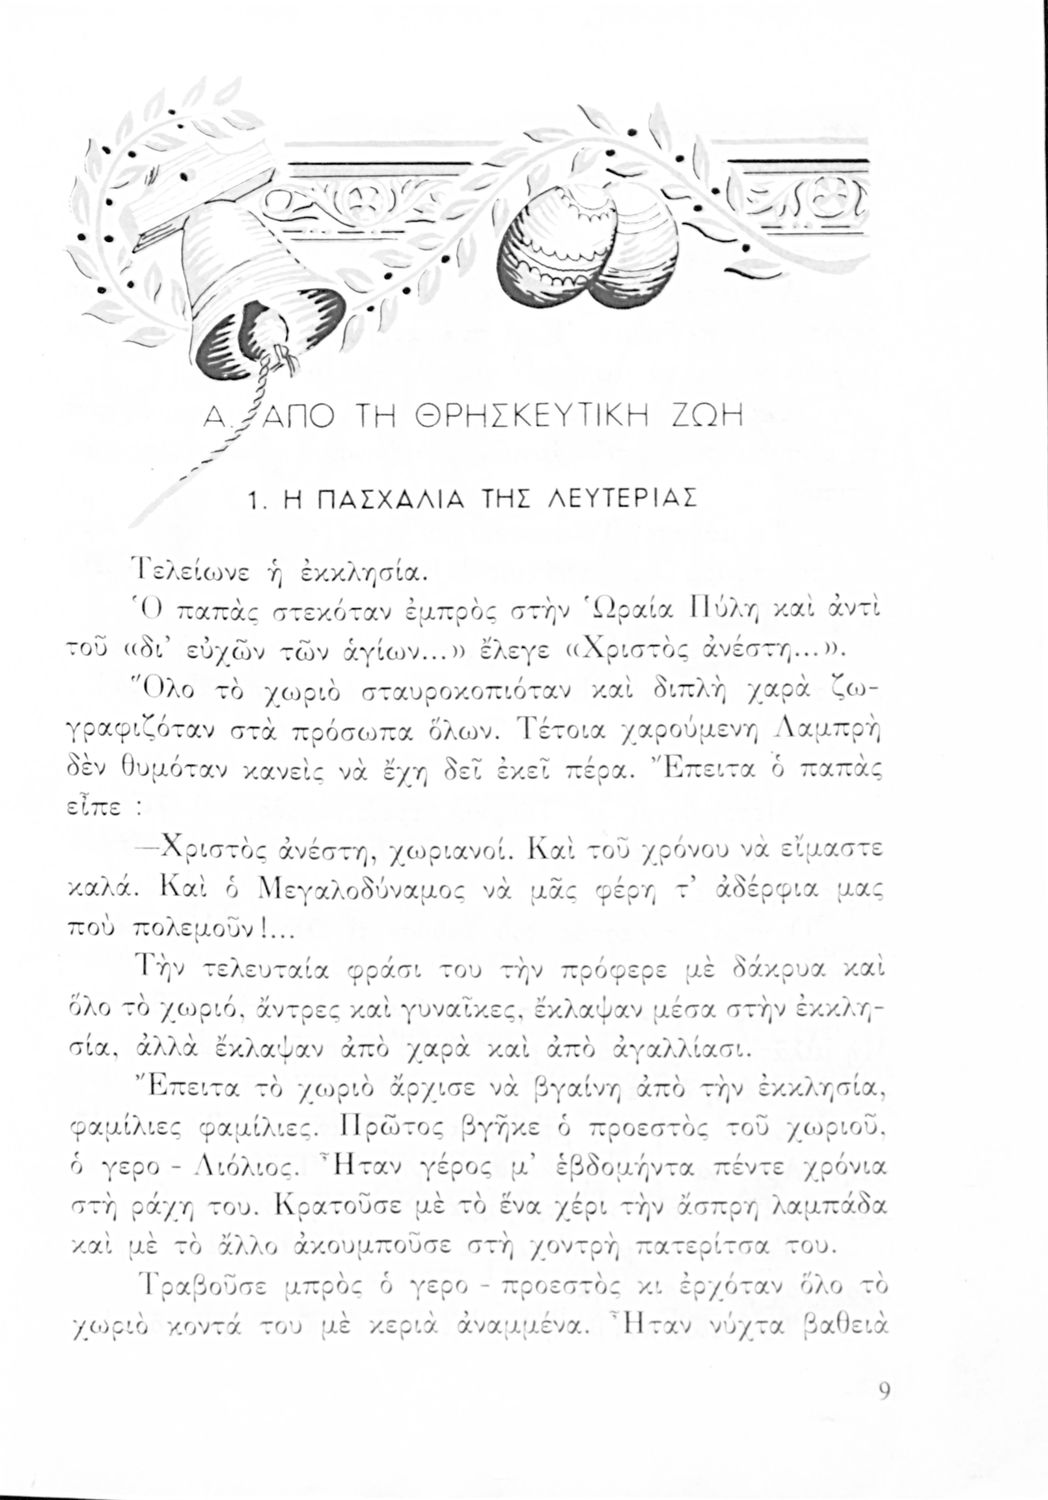 Α. ΑΠΟ ΤΗ ΘΡΗΣΚΕΥΤΙΚΗ ΖΩΗ
1. Η ΠΑΣΧΑΛΙΑ ΤΗΣ ΛΕΥΤΕΡΙΑΣ
Τελείωνε ἡ ἐκκλησία.
Ὁ παπὰς στεκόταν ἐμπρὸς στὴν Ὡραία Πύλη καὶ ἀντὶ
τοῦ «δι’ εὐχῶν τῶν ἁγίων...» ἔλεγε «Χριστὸς ἀνέστη...».
Ὅλο τὸ χωριὸ σταυροκοπιόταν καὶ διπλὴ χαρὰ ζω-
γραφιζόταν στὰ πρόσωπα ὅλων. Τέτοια χαρούμενη Λαμπρὴ
δὲν θυμόταν κανεὶς νὰ ἔχη δεῖ ἐκεῖ πέρα. Ἔπειτα ὁ παπὰς
εἶπε :
—Χριστὸς ἀνέστη, χωριανοί. Καὶ τοῦ χρόνου νὰ εἴμαστε
καλά. Καὶ ὁ Μεγαλοδύναμος νὰ μᾶς φέρη τ’ ἀδέρφια μας
ποὺ πολεμοῦν!...
Τὴν τελευταία φράσι του τὴν πρόφερε μὲ δάκρυα καὶ
ὅλο τὸ χωριό, ἄντρες καὶ γυναῖκες, ἔκλαψαν μέσα στὴν ἐκκλη-
σία, ἀλλὰ ἔκλαψαν ἀπὸ χαρὰ καὶ ἀπὸ ἀγαλλίασι.
Ἔπειτα τὸ χωριὸ ἄρχισε νὰ βγαίνη ἀπὸ τὴν ἐκκλησία,
φαμίλιες φαμίλιες. Πρῶτος βγῆκε ὁ προεστὸς τοῦ χωριοῦ,
ὁ γερο - Λιόλιος. Ἦταν γέρος μ’ ἑβδομήντα πέντε χρόνια
στὴ ράχη του. Κρατοῦσε μὲ τὸ ἕνα χέρι τὴν ἄσπρη λαμπάδα
καὶ μὲ τὸ ἄλλο ἀκουμποῦσε στὴ χοντρὴ πατερίτσα του.
Τραβοῦσε μπρὸς ὁ γερο - προεστὸς κι ἐρχόταν ὅλο τὸ
χωριὸ κοντά του μὲ κεριὰ ἀναμμένα. Ἦταν νύχτα βαθειὰ
9